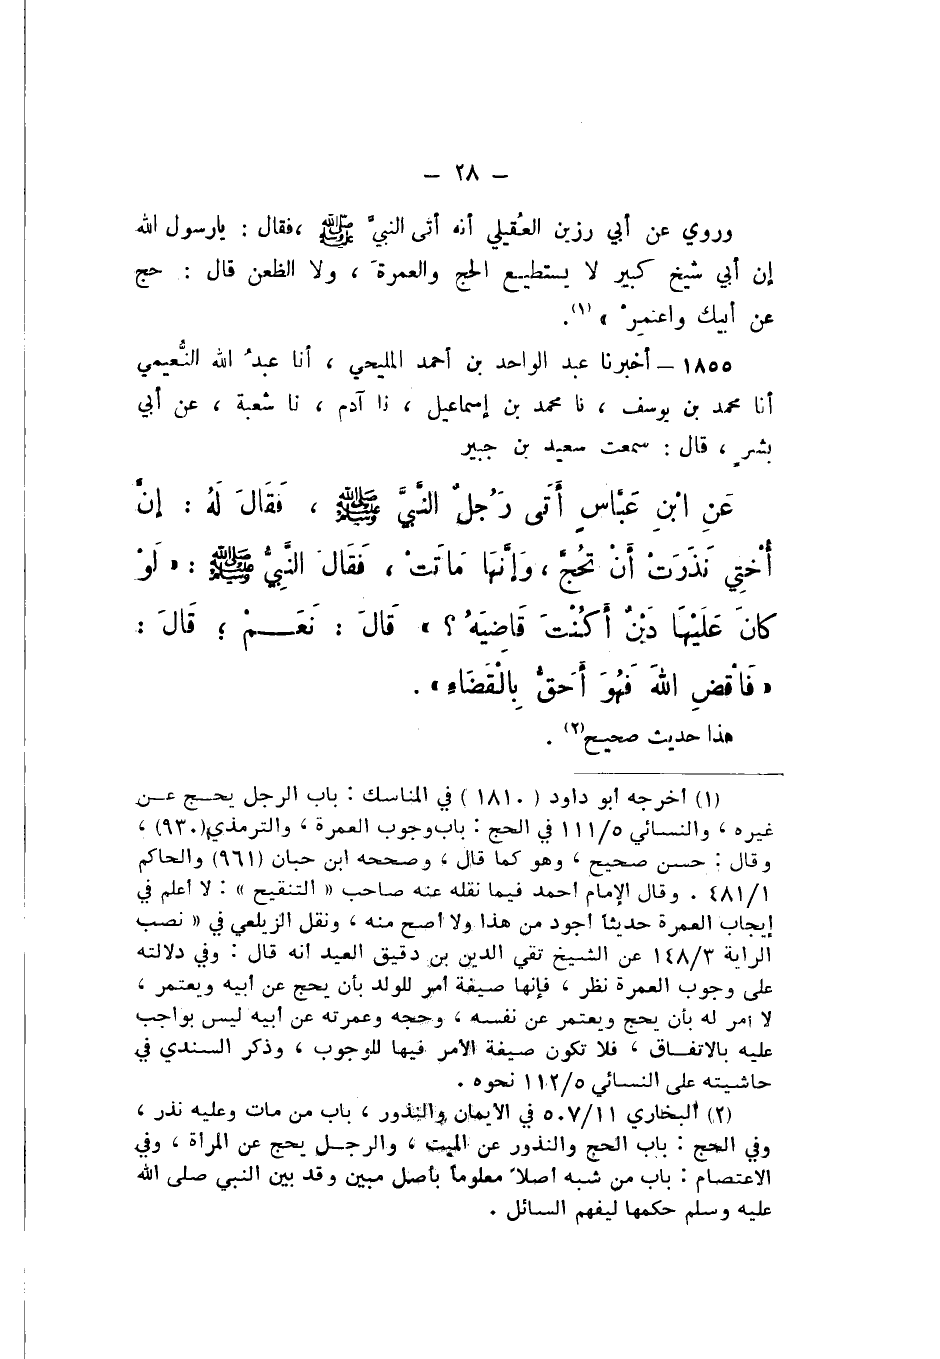 – ٢٨ –
وروي عن أبي رزين العُقيلي أنه أتى النبيَّ ﷺ ،فقال : يارسول الله
إن أبي شيخ كبير لا يستطيع الحج والعمرةَ ، ولا الظعن قال : حج
عن أبيك واعتمِرْ » (١).
١٨٥٥ – أخبرنا عبد الواحد بن أحمد المليحي ، أنا عبدُ الله النُّعيمي
أنا محمد بن يوسف ، نا محمد بن إسماعيل ، نا آدم ، نا شعبة ، عن أبي
بشرٍ ، قال : سمعت سعيد بن جبير
عَنِ ابْنِ عَبَّاسٍ أَتَى رَجُلٌ النَّبيَّ ﷺ ، فَقَالَ لَهُ : إنَّ
أُخْتِي نَذَرَتْ أَنْ تَحُجَّ ، وَإنَّهَا مَاتَتْ ، فَقَالَ النَّبِيُّ ﷺ : « لَوْ
كانَ عَلَيْهَا دَيْنٌ أَكُنْتَ قَاضِيَهُ ؟ » قَالَ : نَعَـــمْ ؛ قَالَ :
« فَاقْضِ اللهَ فَهُوَ أَحَقُّ بِالْقَضَاءِ » .
هذا حديث صحيح(٢) .
(١) أخرجه أبو داود ( ١٨١٠ ) في المناسك : باب الرجل يحـج عـن
غيره ، والنسائي ١١١/٥ في الحج : باب وجوب العمرة ، والترمذي(٩٣٠) ،
وقال : حسن صحيح ، وهو كما قال ، وصححه ابن حبان (٩٦١) والحاكم
٤٨١/١ . وقال الإمام أحمد فيما نقله عنه صاحب « التنقيح » : لا أعلم في
إيجاب العمرة حديثا أجود من هذا ولا أصح منه ، ونقل الزيلعي في « نصب
الراية ١٤٨/٣ عن الشيخ تقي الدين بن دقيق العيد أنه قال : وفي دلالته
على وجوب العمرة نظر ، فإنها صيغة أمر للولد بأن يحج عن أبيه ويعتمر ،
لا أمر له بأن يحج ويعتمر عن نفسه ، وحجه وعمرته عن أبيه ليس بواجب
عليه بالاتفـاق ، فلا تكون صيغة الأمر فيها للوجوب ، وذكر السندي في
حاشيته على النسائي ١١٢/٥ نحوه .
(٢) البخاري ٥٠٧/١١ في الايمان والنذور ، باب من مات وعليه نذر ،
وفي الحج : باب الحج والنذور عن الميت ، والرجـل يحج عن المرأة ، وفي
الاعتصام : باب من شبه أصلاً معلوماً بأصل مبين وقد بين النبي صلى الله
عليه وسلم حكمها ليفهم السائل .